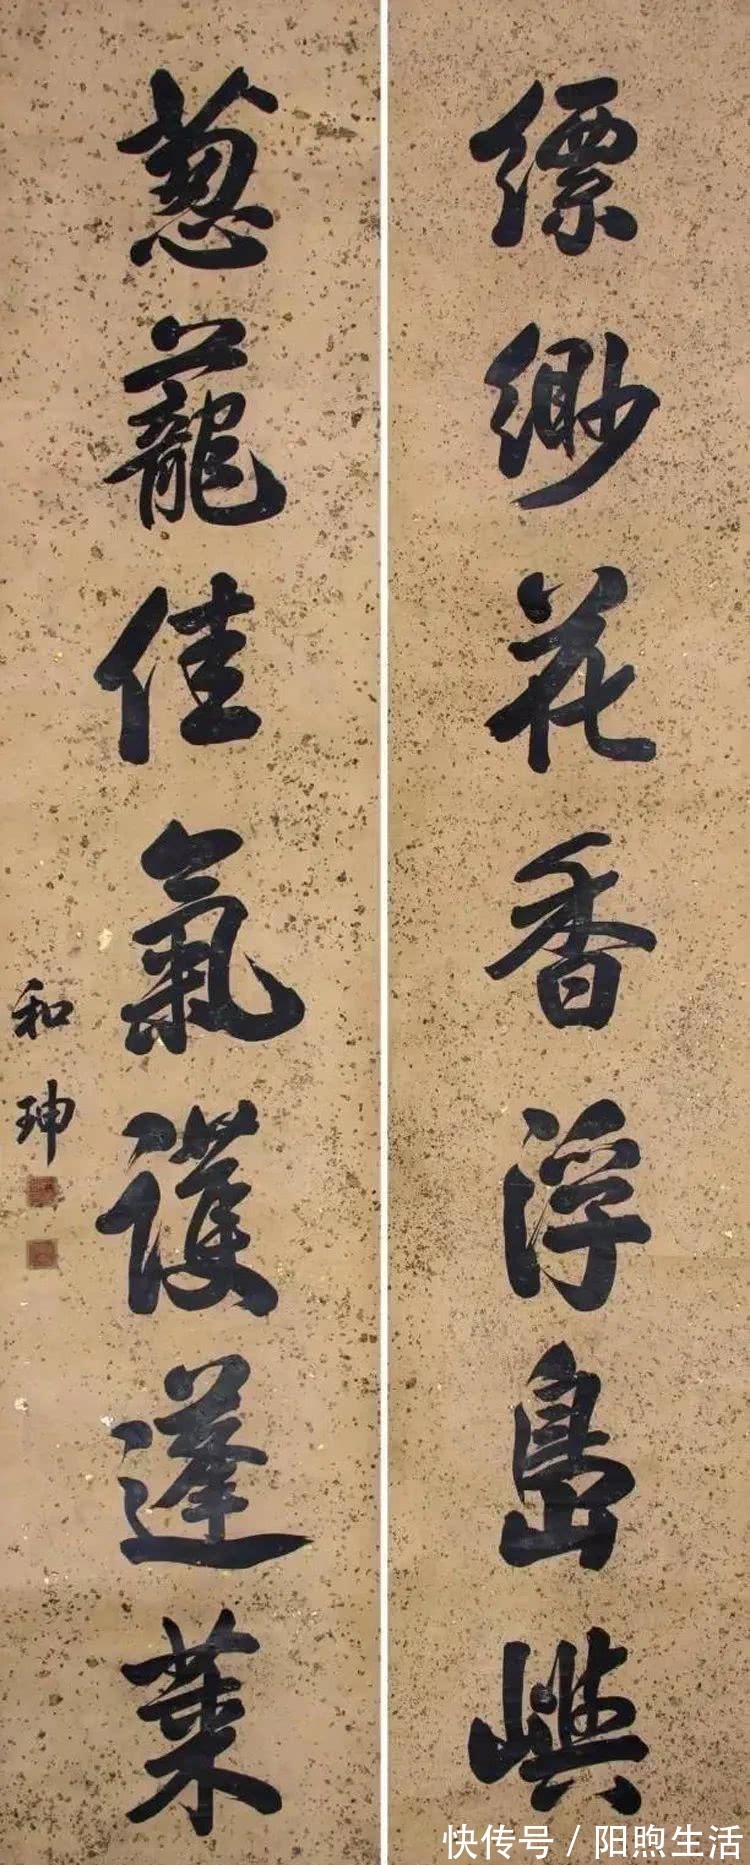 缥緲花香浮島嶼
蔥蘢佳氣護蓬萊
和珅
快传号 / 阳煦生活